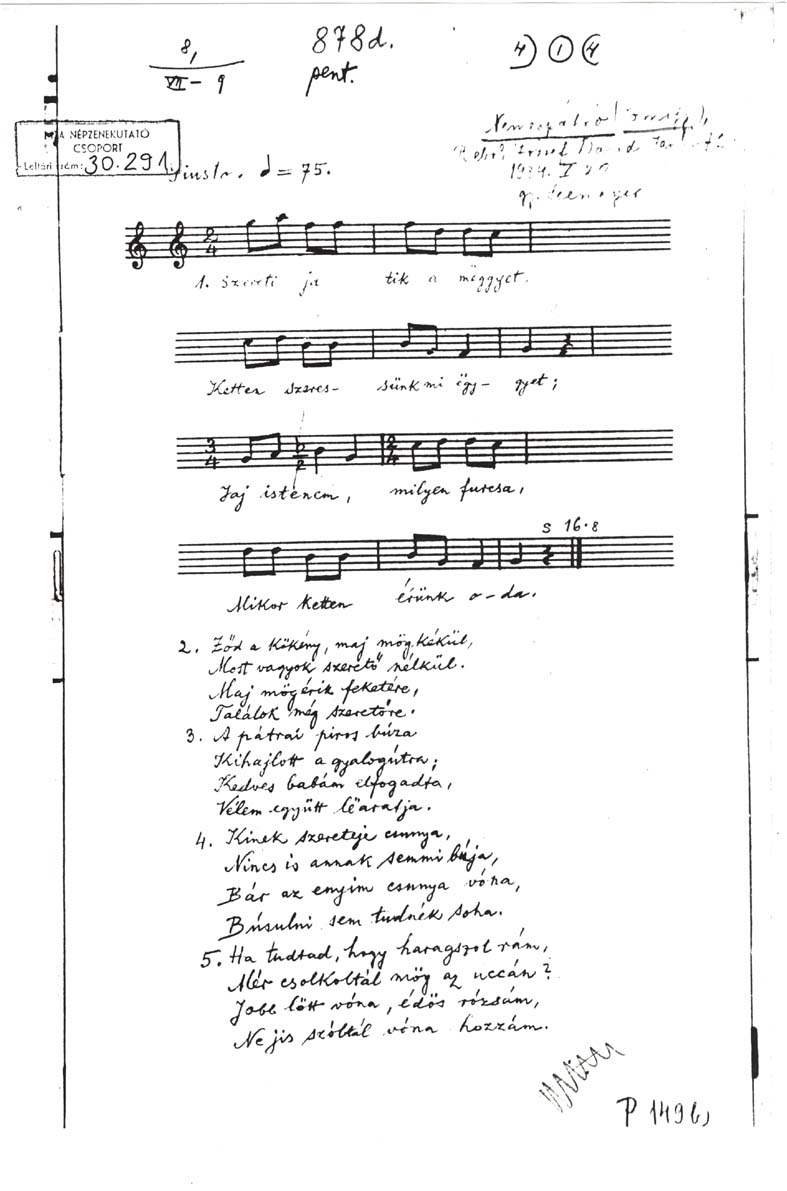 8,
VII - 9
878d.
pent.
4) 1 (4
MTA NÉPZENEKUTATÓ
CSOPORT
Leltári szám: 30.291
Giusto. = 75.
1. Szereti ja tik a mëggyet.
Ketten szeres- sünk mi ëgy- gyet;
Jaj istenem, milyen furcsa,
s 16.8
Mikor ketten érünk o-da.
2. Ződ a kökény, maj mög kékül,
Most vagyok szerető nélkül.
Maj mögérik feketére,
Találok még szeretőre.
3. A pátrai piros búza
Kihajlott a gyalogútra;
Kedves babám elfogadta,
Vélem együtt lëaratja.
4. Kinek szereteje csunya,
Nincs is annak semmi búja,
Bár az enyim csunya vóna,
Búsulni sem tudnék soha.
5. Ha tudtad, hogy haragszol rám,
Mér csolkoltál mög az uccán?
Jobb lött vóna, édös rózsám,
Ne jis szóltál vóna hozzám.
P 149b)